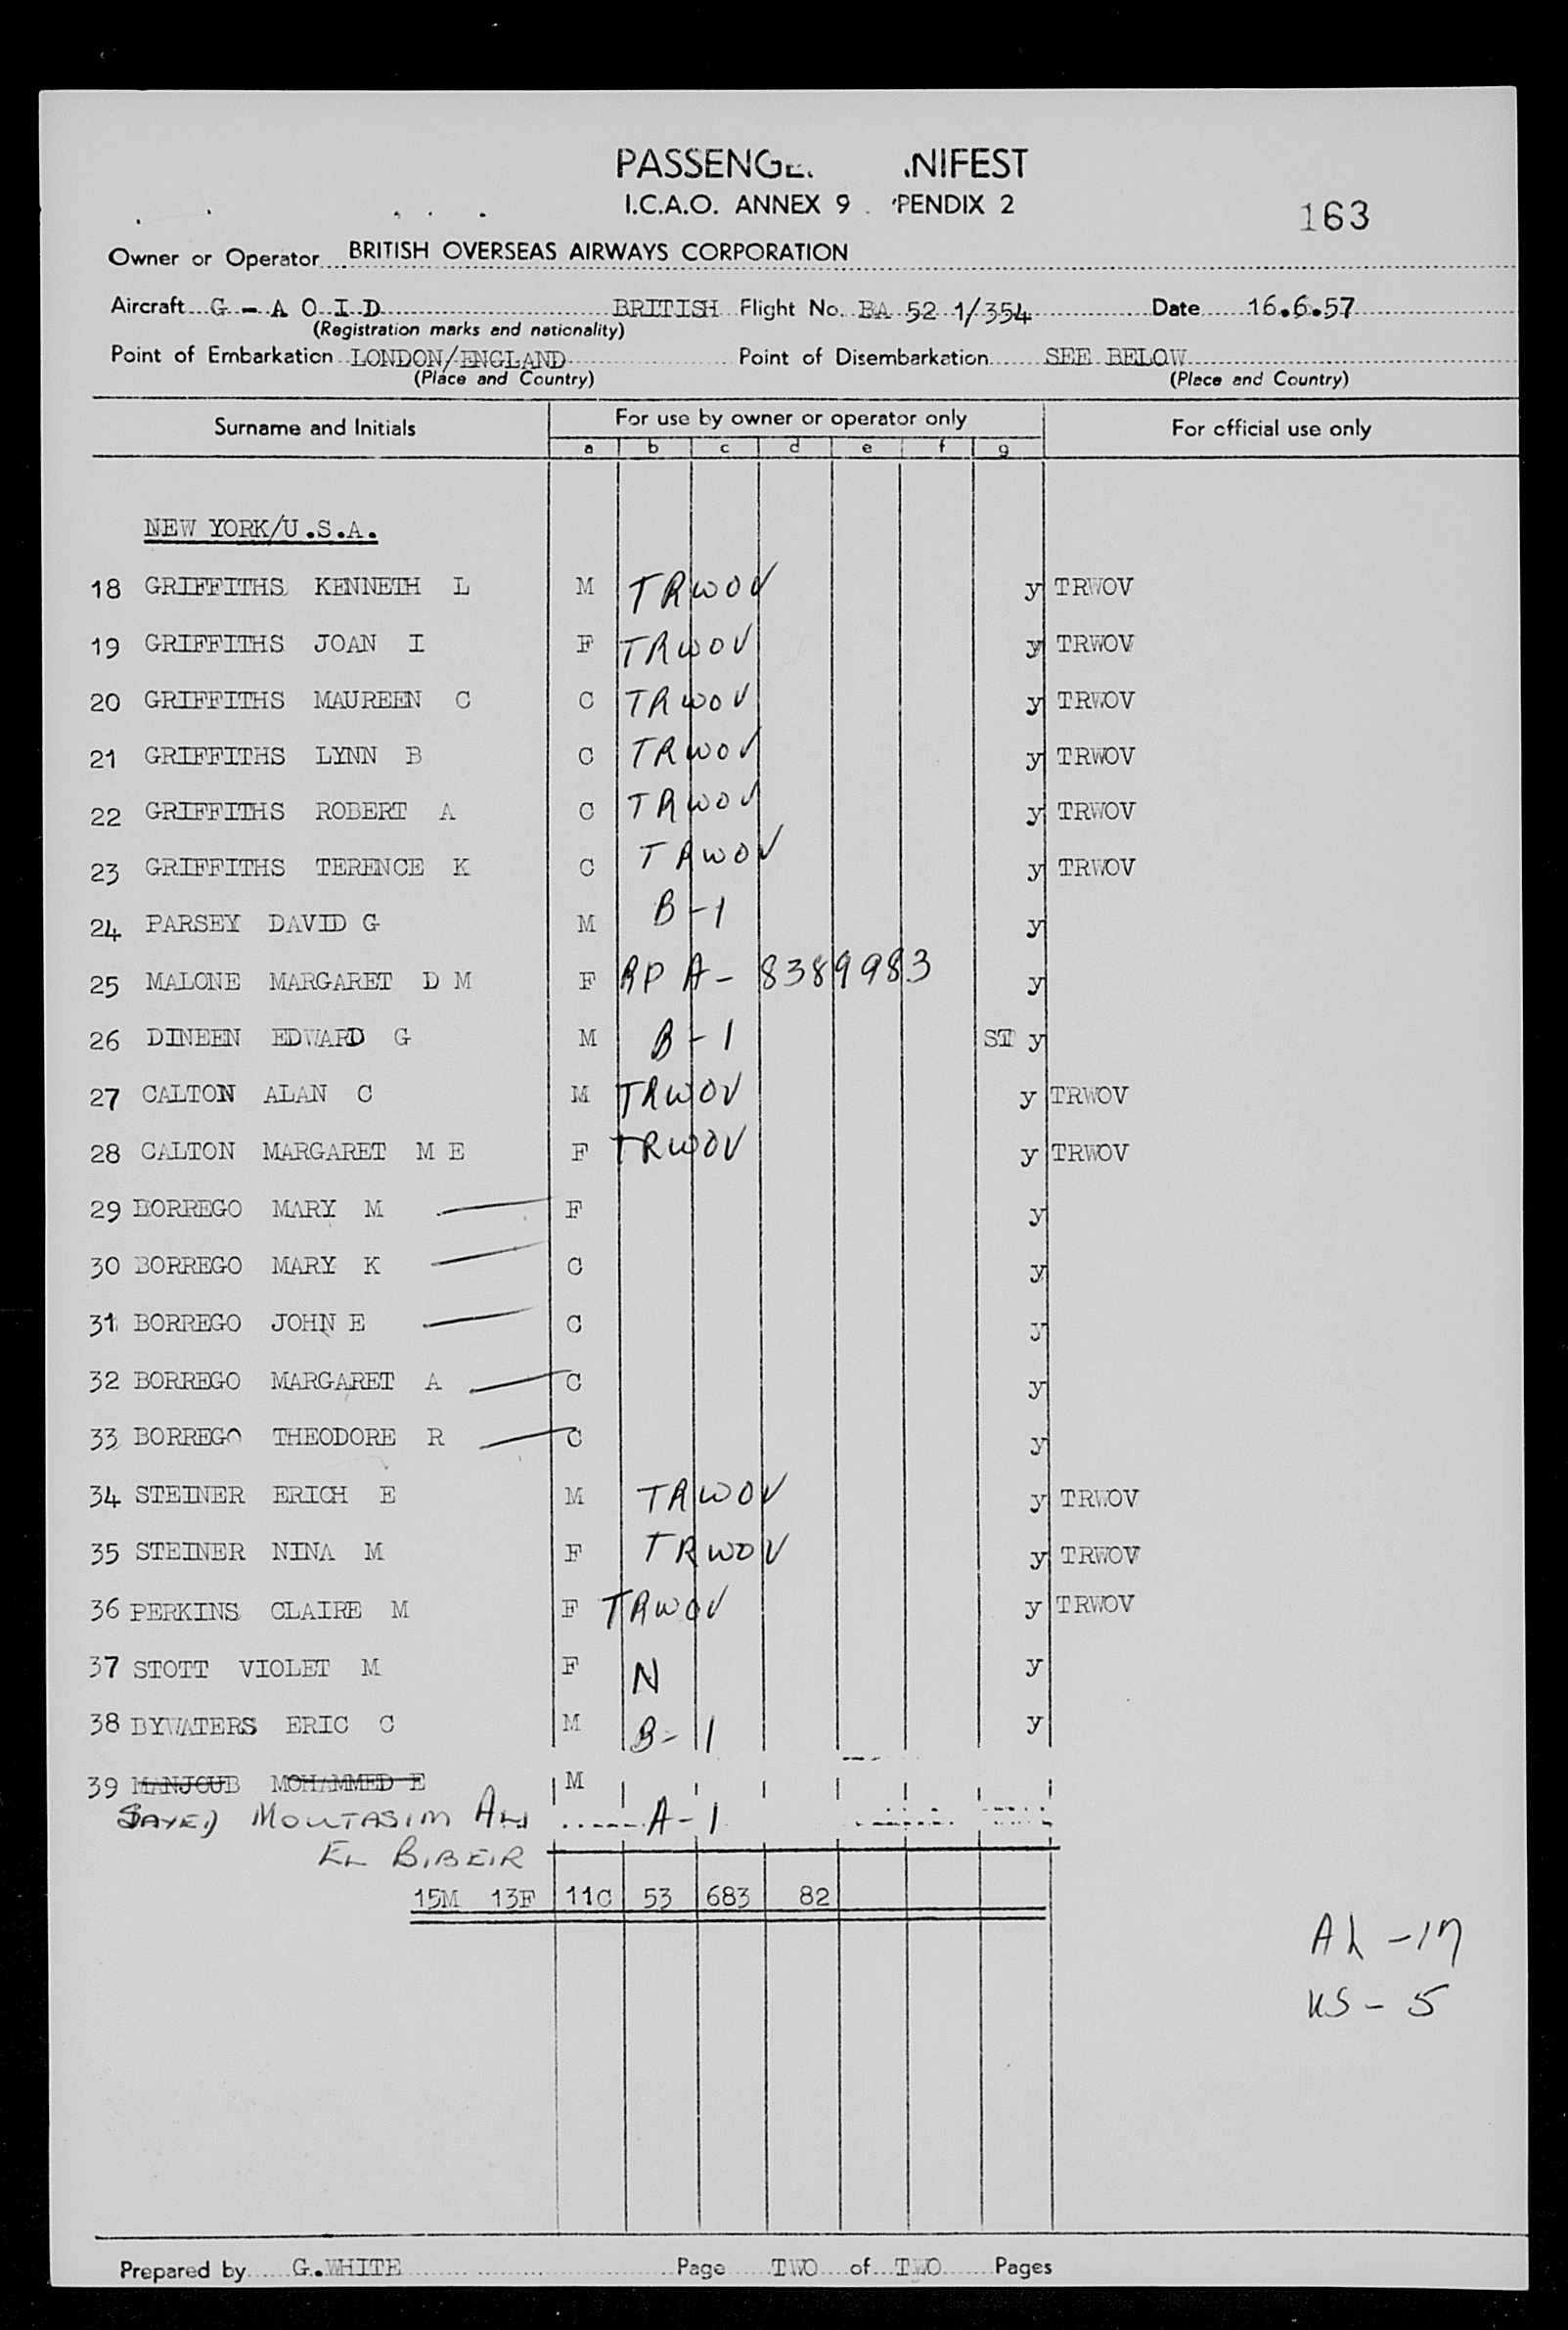 PASSENGE NIFEST
I.C.A.O. ANNEX 9 PENDIX 2
163
Owner or Operator BRITISH OVERSEAS AIRWAYS CORPORATION
Aircraft G - A O I D BRITISH Flight No. BA 52 1/354 Date 16.6.57
(Registration marks and nationality)
Point of Embarkation LONDON/ENGLAND Point of Disembarkation SEE BELOW
(Place and Country) (Place and Country)
Surname and Initials For use by owner or operator only For official use only
a b c d e f g
NEW YORK/U.S.A.
18 GRIFFITHS KENNETH L M TRWOV y TRWOV
19 GRIFFITHS JOAN I F TRWOV y TRWOV
20 GRIFFITHS MAUREEN C C TRWOV y TRWOV
21 GRIFFITHS LYNN B C TRWOV y TRWOV
22 GRIFFITHS ROBERT A C TRWOV y TRWOV
23 GRIFFITHS TERENCE K C TRWOV y TRWOV
24 PARSEY DAVID G M B-1 y
25 MALONE MARGARET D M F RP A- 8389983 y
26 DINEEN EDWARD G M B-1 ST y
27 CALTON ALAN C M TRWOV y TRWOV
28 CALTON MARGARET M E F TRWOV y TRWOV
29 BORREGO MARY M F y
30 BORREGO MARY K C y
31 BORREGO JOHN E C y
32 BORREGO MARGARET A C y
33 BORREGO THEODORE R C y
34 STEINER ERICH E M TRWOV y TRWOV
35 STEINER NINA M F TRWOV y TRWOV
36 PERKINS CLAIRE M F TRWOV y TRWOV
37 STOTT VIOLET M F N y
38 BYWATERS ERIC C M B-1 y
39 MANJOUB MOHAMMED E M
SAYED MOUTASIM ALI A-1
EL BIBEIR
15M 13F 11C 53 683 82
AL -17
US - 5
Prepared by G.WHITE Page TWO of TWO Pages